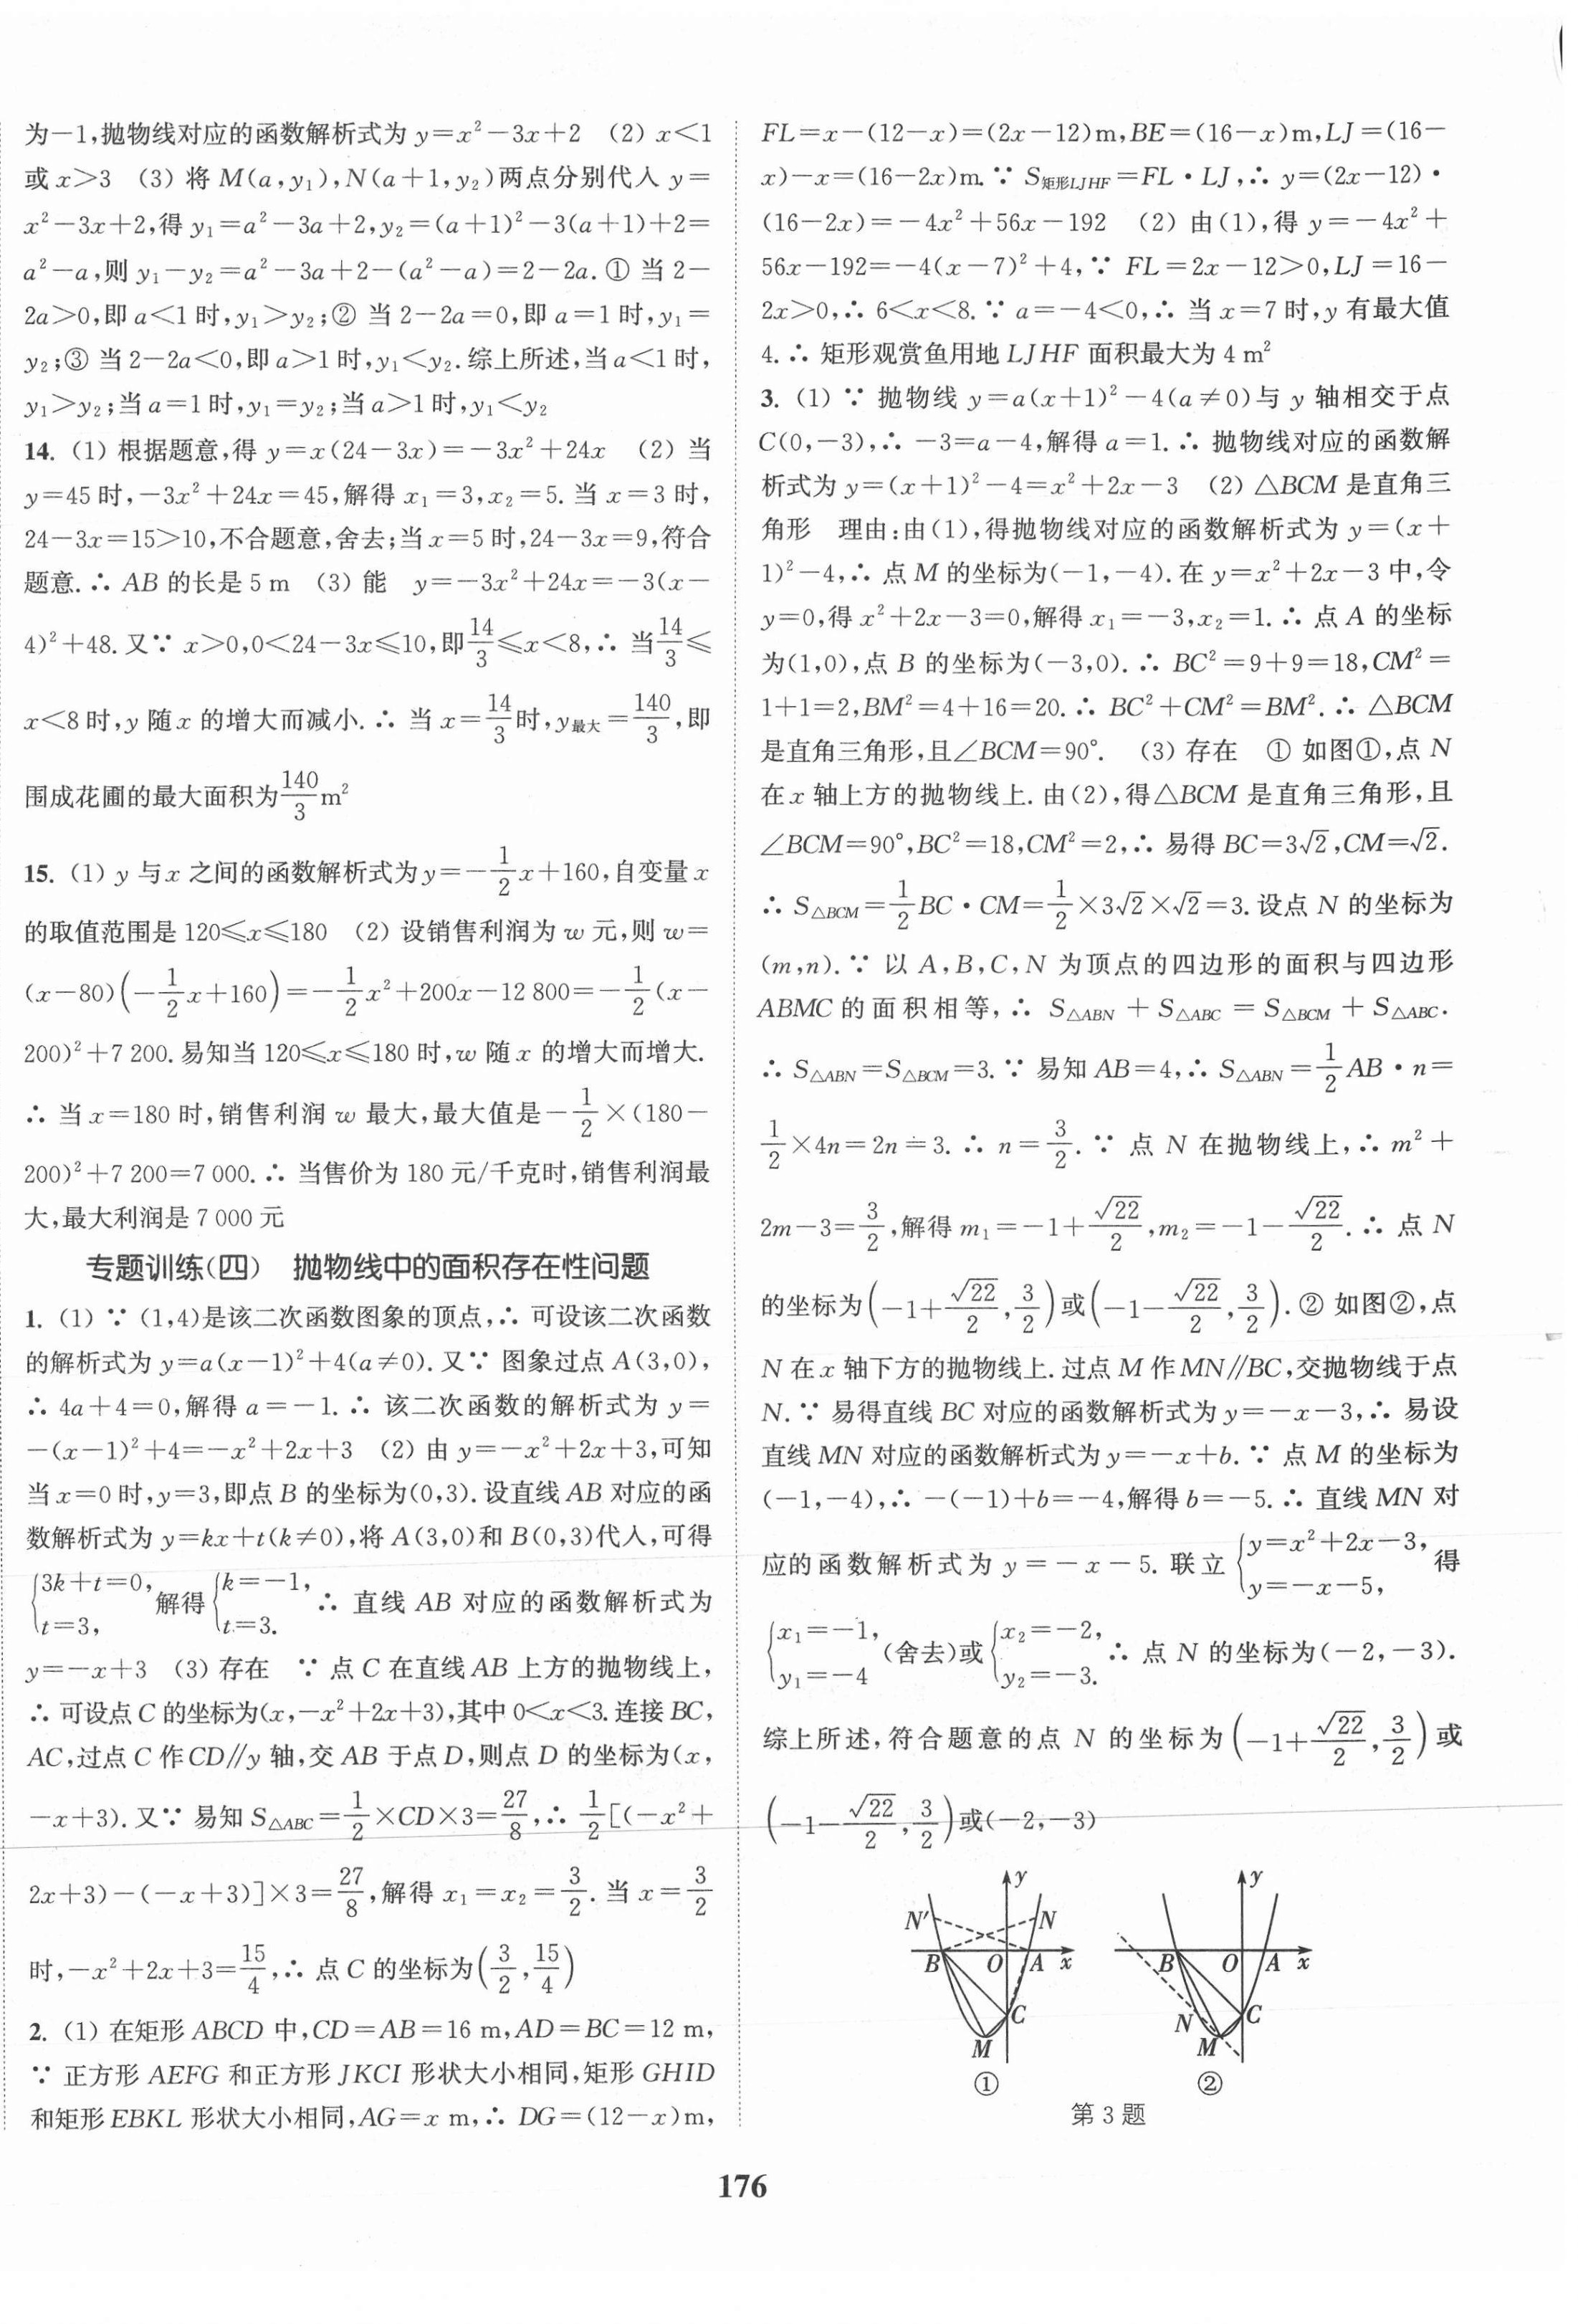 为－1,抛物线对应的函数解析式为 y=x²－3x+2 (2) x<1
或 x>3 (3) 将 M(a,y₁),N(a+1,y₂)两点分别代入 y=
x²－3x+2,得 y₁=a²－3a+2,y₂=(a+1)²－3(a+1)+2=
a²－a,则 y₁－y₂=a²－3a+2－(a²－a)=2－2a. ① 当 2－
2a>0,即 a<1 时,y₁>y₂;② 当 2－2a=0,即 a=1 时,y₁=
y₂;③ 当 2－2a<0,即 a>1 时,y₁<y₂. 综上所述,当 a<1 时,
y₁>y₂;当 a=1 时,y₁=y₂;当 a>1 时,y₁<y₂
14. (1) 根据题意,得 y=x(24－3x)=－3x²+24x (2) 当
y=45 时,－3x²+24x=45,解得 x₁=3,x₂=5. 当 x=3 时,
24－3x=15>10,不合题意,舍去;当 x=5 时,24－3x=9,符合
题意. ∴ AB 的长是 5 m (3) 能 y=－3x²+24x=－3(x－
4)²+48. 又∵ x>0,0<24－3x≤10,即14/3≤x<8,∴ 当14/3≤
x<8 时,y 随 x 的增大而减小. ∴ 当 x=14/3时,y最大=140/3,即
围成花圃的最大面积为140/3 m²
15. (1) y 与 x 之间的函数解析式为 y=－1/2x+160,自变量 x
的取值范围是 120≤x≤180 (2) 设销售利润为 w 元,则 w=
(x－80)(－1/2x+160)=－1/2x²+200x－12 800=－1/2(x－
200)²+7 200. 易知当 120≤x≤180 时,w 随 x 的增大而增大.
∴ 当 x=180 时,销售利润 w 最大,最大值是－1/2×(180－
200)²+7 200=7 000. ∴ 当售价为 180 元/千克时,销售利润最
大,最大利润是 7 000 元
专题训练(四) 抛物线中的面积存在性问题
1. (1) ∵ (1,4)是该二次函数图象的顶点,∴ 可设该二次函数
的解析式为 y=a(x－1)²+4(a≠0). 又∵ 图象过点 A(3,0),
∴ 4a+4=0,解得 a=－1. ∴ 该二次函数的解析式为 y=
－(x－1)²+4=－x²+2x+3 (2) 由 y=－x²+2x+3,可知
当 x=0 时,y=3,即点 B 的坐标为(0,3). 设直线 AB 对应的函
数解析式为 y=kx+t(k≠0),将 A(3,0)和 B(0,3)代入,可得
{3k+t=0, t=3, 解得{k=－1, t=3. ∴ 直线 AB 对应的函数解析式为
y=－x+3 (3) 存在 ∵ 点 C 在直线 AB 上方的抛物线上,
∴ 可设点 C 的坐标为(x,－x²+2x+3),其中 0<x<3. 连接 BC,
AC,过点 C 作 CD∥y 轴,交 AB 于点 D,则点 D 的坐标为(x,
－x+3). 又∵ 易知 S△ABC=1/2×CD×3=27/8,∴ 1/2[(－x²+
2x+3)－(－x+3)]×3=27/8,解得 x₁=x₂=3/2. 当 x=3/2
时,－x²+2x+3=15/4,∴ 点 C 的坐标为(3/2,15/4)
2. (1) 在矩形 ABCD 中,CD=AB=16 m,AD=BC=12 m,
∵ 正方形 AEFG 和正方形 JKCI 形状大小相同,矩形 GHID
和矩形 EBKL 形状大小相同,AG=x m,∴ DG=(12－x)m,
FL=x－(12－x)=(2x－12)m,BE=(16－x)m,LJ=(16－
x)－x=(16－2x)m. ∵ S矩形LJHF=FL·LJ,∴ y=(2x－12)·
(16－2x)=－4x²+56x－192 (2) 由(1),得 y=－4x²+
56x－192=－4(x－7)²+4,∵ FL=2x－12>0,LJ=16－
2x>0,∴ 6<x<8. ∵ a=－4<0,∴ 当 x=7 时,y 有最大值
4. ∴ 矩形观赏鱼用地 LJHF 面积最大为 4 m²
3. (1) ∵ 抛物线 y=a(x+1)²－4(a≠0)与 y 轴相交于点
C(0,－3),∴ －3=a－4,解得 a=1. ∴ 抛物线对应的函数解
析式为 y=(x+1)²－4=x²+2x－3 (2) △BCM 是直角三
角形 理由:由(1),得抛物线对应的函数解析式为 y=(x+
1)²－4,∴ 点 M 的坐标为(－1,－4). 在 y=x²+2x－3 中,令
y=0,得 x²+2x－3=0,解得 x₁=－3,x₂=1. ∴ 点 A 的坐标
为(1,0),点 B 的坐标为(－3,0). ∴ BC²=9+9=18,CM²=
1+1=2,BM²=4+16=20. ∴ BC²+CM²=BM². ∴ △BCM
是直角三角形,且∠BCM=90°. (3) 存在 ① 如图①,点 N
在 x 轴上方的抛物线上. 由(2),得△BCM 是直角三角形,且
∠BCM=90°,BC²=18,CM²=2,∴ 易得 BC=3√2,CM=√2.
∴ S△BCM=1/2BC·CM=1/2×3√2×√2=3. 设点 N 的坐标为
(m,n). ∵ 以 A,B,C,N 为顶点的四边形的面积与四边形
ABMC 的面积相等,∴ S△ABN + S△ABC = S△BCM + S△ABC.
∴ S△ABN=S△BCM=3. ∵ 易知 AB=4,∴ S△ABN=1/2AB·n=
1/2×4n=2n=3. ∴ n=3/2. ∵ 点 N 在抛物线上,∴ m²+
2m－3=3/2,解得 m₁=－1+√22/2,m₂=－1－√22/2. ∴ 点 N
的坐标为(－1+√22/2,3/2)或(－1－√22/2,3/2). ② 如图②,点
N 在 x 轴下方的抛物线上. 过点 M 作 MN∥BC,交抛物线于点
N. ∵ 易得直线 BC 对应的函数解析式为 y=－x－3,∴ 易设
直线 MN 对应的函数解析式为 y=－x+b. ∵ 点 M 的坐标为
(－1,－4),∴ －(－1)+b=－4,解得 b=－5. ∴ 直线 MN 对
应的函数解析式为 y=－x－5. 联立{y=x²+2x－3, y=－x－5, 得
{x₁=－1, y₁=－4 (舍去)或{x₂=－2, y₂=－3. ∴ 点 N 的坐标为(－2,－3).
综上所述,符合题意的点 N 的坐标为(－1+√22/2,3/2)或
(－1－√22/2,3/2)或(－2,－3)
y
N′ N
B O A x
C
M
①
y
B O A x
N C
M
②
第 3 题
176